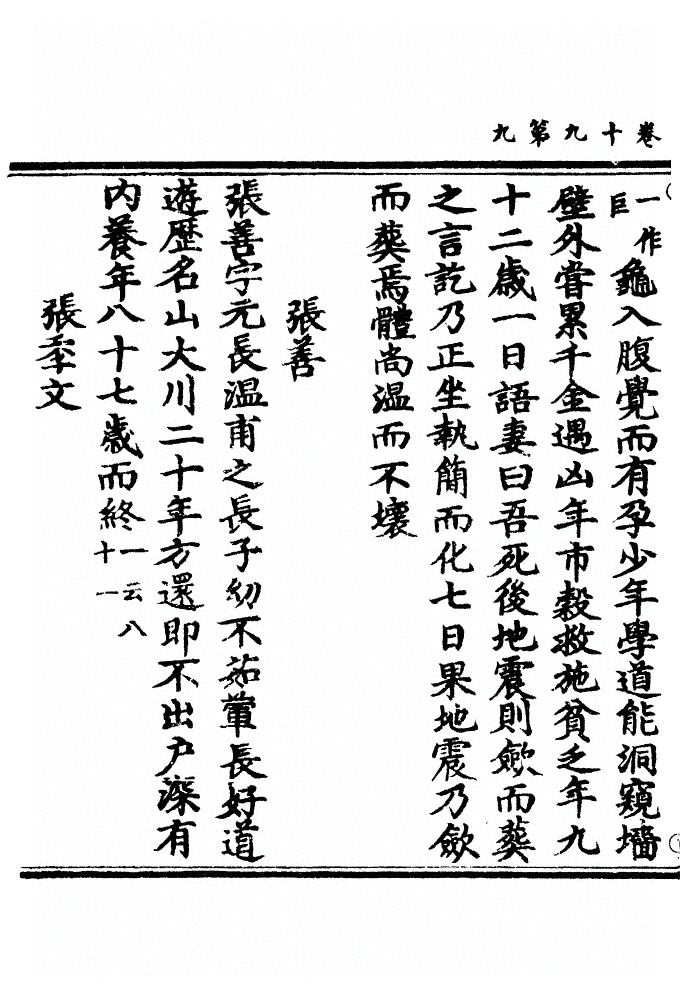 卷十九第九
一作巨龜入腹覺而有孕少年學道能洞窺墻
壁外嘗累千金遇凶年市穀救施貧乏年九
十二歲一日語妻曰吾死後地震則歛而葬
之言訖乃正坐執簡而化七日果地震乃歛
而葬焉體尚温而不壞
張善
張善字元長温甫之長子幼不茹葷長好道
遊歷名山大川二十年方還即不出戶深有
内養年八十七歲而終一云八十一
張季文